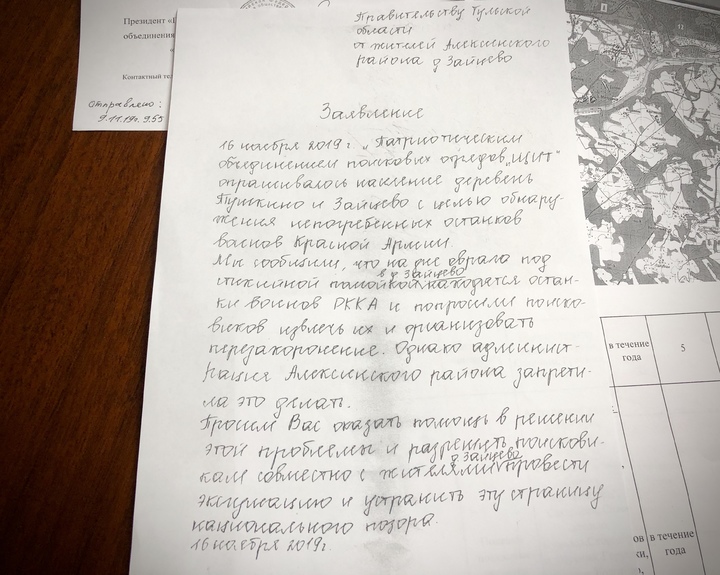 Президент «
объединения
Контактный тел
Отправлено:
9.11.19г. 9.55
Правительству Тульской
области
от жителей Алексинского
района д Зайцево
Заявление
16 ноября 2019 г. „Патриотическим
объединением поисковых отрядов „ЩИТ"
опрашивалось население деревень
Пушкино и Зайцево с целью обнару-
жения непогребенных останков
воинов Красной Армии.
Мы сообщили, что на дне оврага под
в д Зайцево
стихийной помойкой находятся остан-
ки воинов РККА и попросили поиско-
виков извлечь их и организовать
перезахоронение. Однако админист-
рация Алексинского района запрети-
ла это делать.
Просим Вас оказать помощь в решении
этой проблемы и разрешить поискови-
д Зайцево
кам совместно с жителями провести
эксгумацию и устранить эту страницу
национального позора.
16 ноября 2019г.
в течение
года
5
1
в течение
года